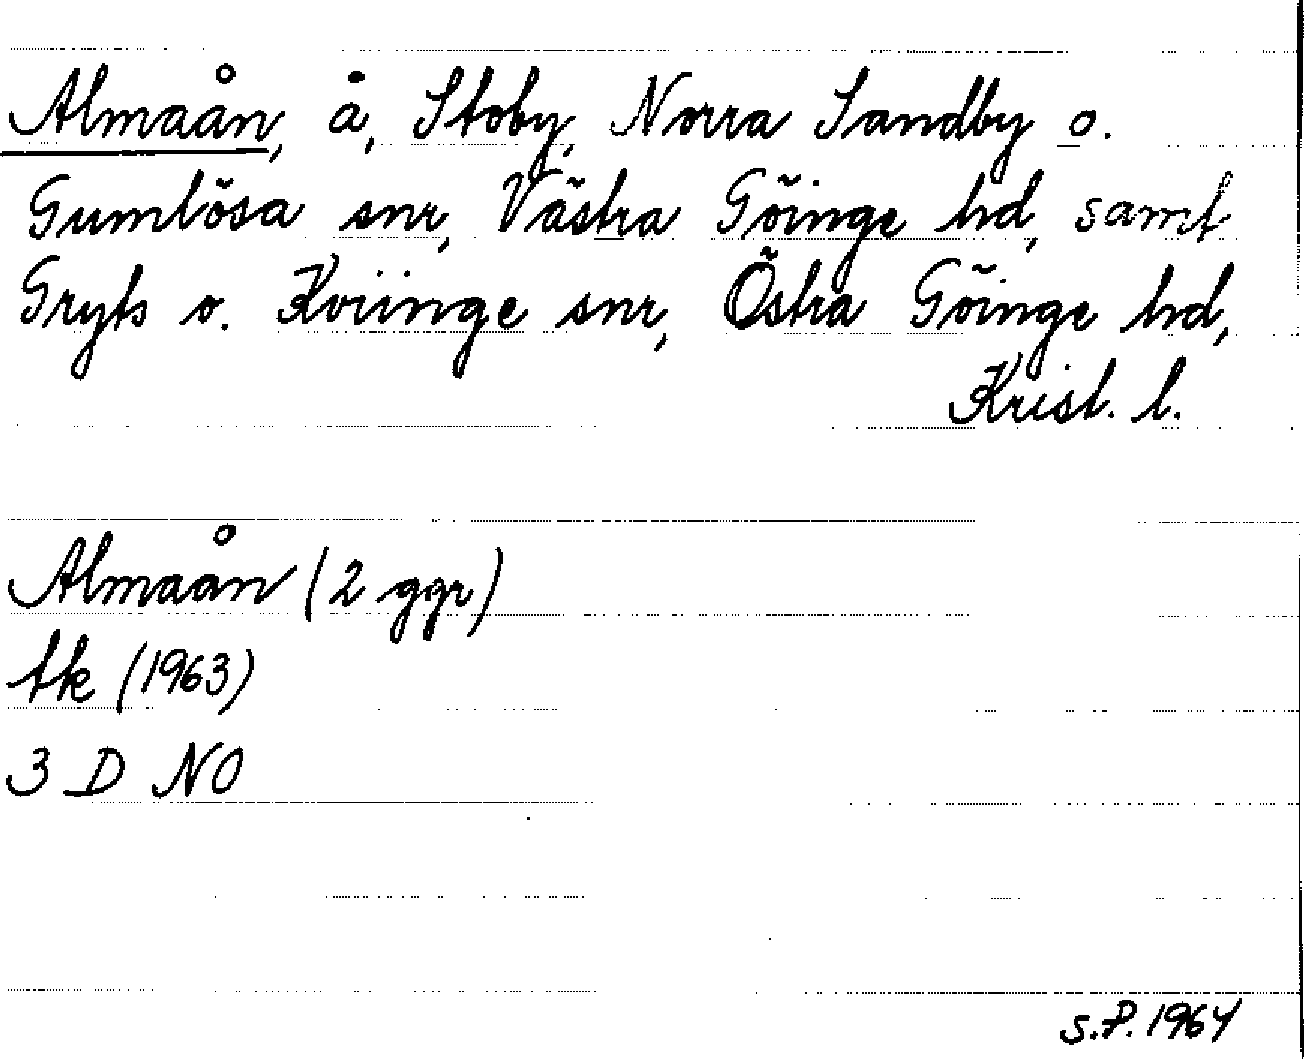 Almaån, å, Stoby, Norra Sandby o.
Gumlösa snr, Västra Göinge hd, samt
Gryts o. Kviinge snr, Östra Göinge hd,
Krist. l.
Almaån (2 ggr)
tk (1963)
3 D NO
S.P. 1964